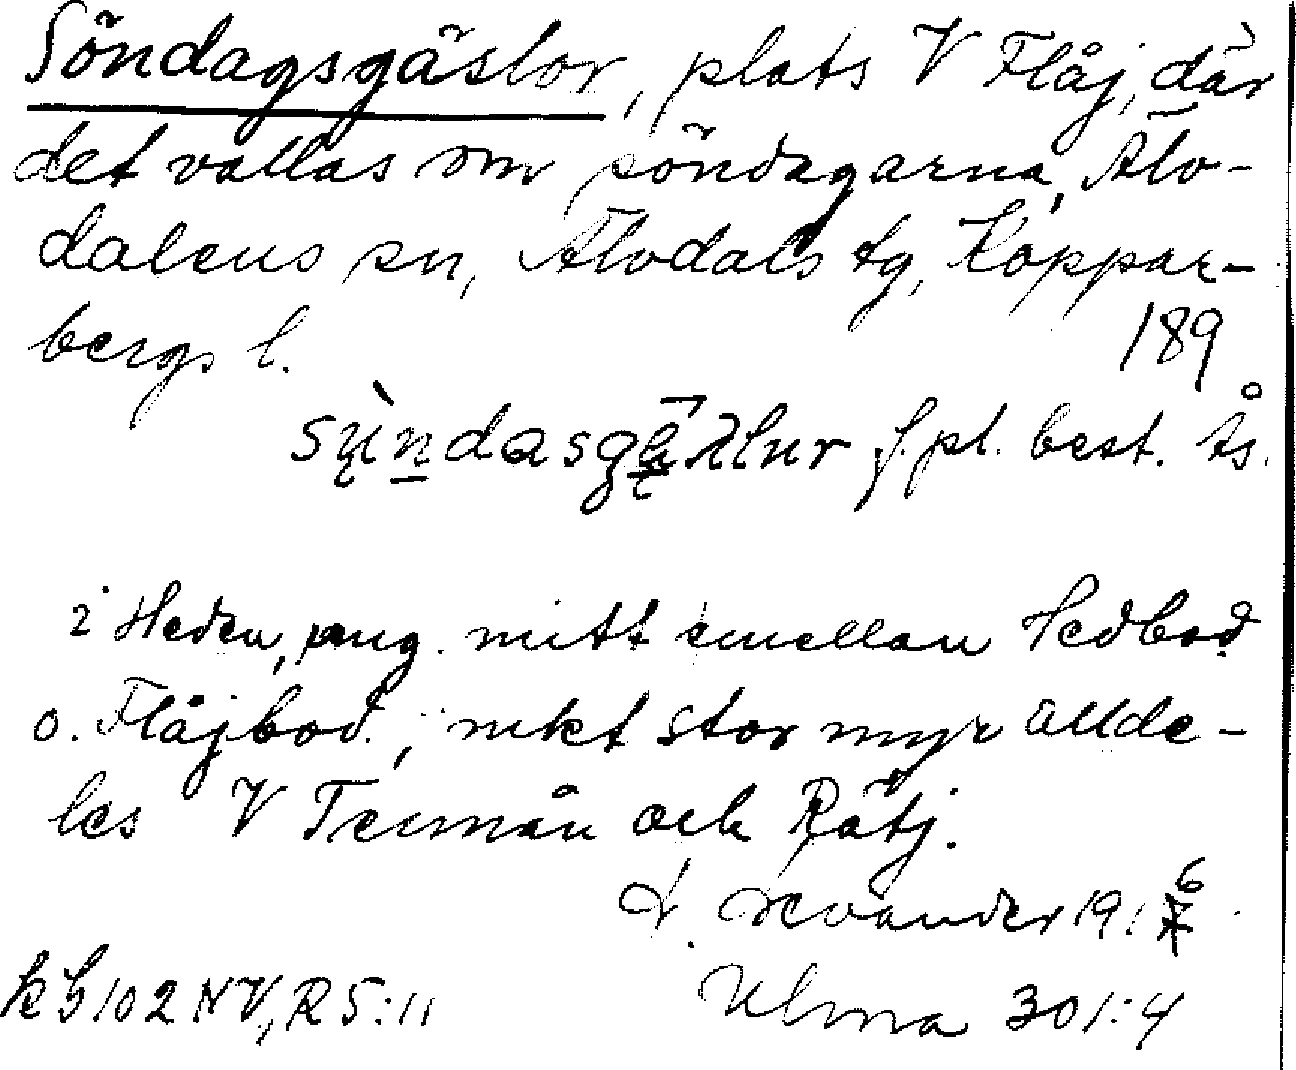 Söndagsgäslor, plats V Flåj, där
det vallas om söndagarna, Älv-
dalens sn, Älvdals tg, Koppar-
bergs l.
189
f. pl. best. Ås.
i Heden, mitt emellan Hedbod.
o. Flåjbod., mkt stor myr allde-
les V Tennån och Rötj.
L. Levander 1916
kb 102 NV, R 5:11
Ulma 301:4